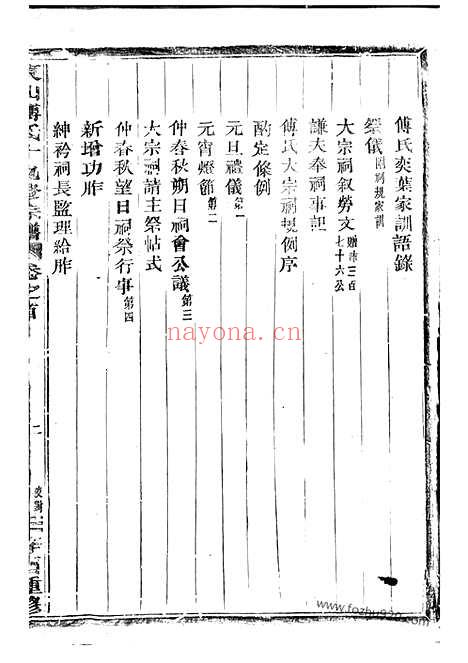 傅氏奕葉家訓語錄
祭儀 附祠規家訓
大宗祠叙勞文 贈沛三貞七十六公
謙夫奉祠事記
傅氏大宗祠規例序
酌定條例
元旦禮儀 第一
元宵燈節 第二
仲春秋朔日祠會公議 第三
大宗祠請主祭帖式
仲春秋望日祠祭行事 第四
新增功胙
紳衿祠長監理給胙
nayona.cn
www.fozhu920.com